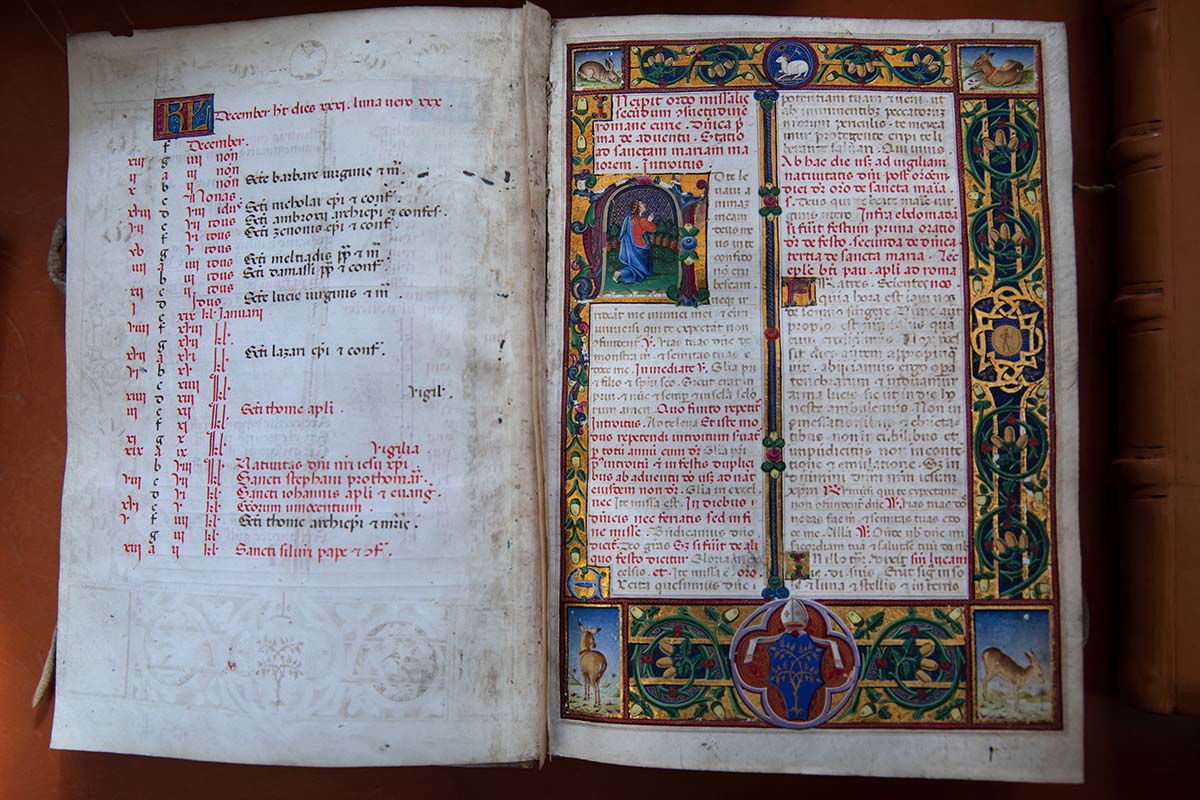 KL December ht dies xxxj. luna vero xxx.
f December.
xiii g iiii non
ii a iii non
x b ii non Scte barbare virginis et m.
c Nonas.
xviii d viii idus Scti nicholai epi et conf.
vii e vii idus Scti ambrosij archiepi et confes.
f vi idus Scti zenonis epi et conf.
xv g v idus
iiii a iiii idus Scti melciadis pp et m.
b iii idus Scti damassi pp et conf.
xii c ii idus
i d Idus Scte lucie virginis et m.
e xix kl Januarii
viiii f xviii kl
g xvii kl
xvii a xvi kl Scti lazari epi et conf.
vi b xv kl
c xiiii kl
xiiii d xiii kl Vigil.
iii e xii kl Scti thome apli.
f xi kl
xi g x kl
xix a ix kl Vigilia
b viii kl Nativitas dni nri iesu xpi.
viii c vii kl Sancti stephani prothom.
d vi kl Sancti iohannis apli et evang.
xvi e v kl Sctorum innocentum
v f iiii kl Scti thome archiepi et mris.
g iii kl
xiii a ii kl Sancti silvri pape et cf.
Incipit ordo missalis
secundum consuetudine
romane curie. Dnica p
ma de adventu. Statio
ad sanctam mariam ma
iorem. Introitus.
Ad te le
vavi a
nimam
meam
deus me
us in te
confido
non eru
bescam
neqz ir
rideant me inimici mei. et eim
universi qui te expectant non
confundent. V. Vias tuas dne de
monstra m. et semitas tuas e
doce me. Immediate V. Glia pri
et filio et spui sco. Sicut erat in
prin. et nuc et semp et in scla sclo
rum amen. Quo finito repetit
Introitus. Ad te levavi. Et iste mo
dus repetendi introitum servat
per totum annum cum dr. Glia pri
p introitu et in festis duplici
bus ab adventu usz ad nat
eiusdem non dr. Glia in excel
nec Ite missa est. In diebus
dnicis nec ferialis sed in fi
ne misse. Bndicamus dno
dicit. Deo gras Sz si fuit de ali
quo festo dicitur. Gloria in ex
celsis. et. Ite missa e. oro.
Excita quesumus dne
potentiam tuam et veni. ut
ab imminentibz peccatorum
nostrorum periculis. te mereamur
protegente eripi. te
liberante salvari. Qui vivis.
Ab hac die usz ad vigiliam
nativitatis dni post orcem
diei dr oro de sancta maria.
Deus qui de beate marie vir
ginis utero. Infra ebdomada
si fuit festum prima oratio
dr de festo. secunda de dnica
tertia de sancta maria. Lec
eple bti pau. apli ad roma
Fratres. Scientes
quia hora est iam nos
de somno surgere. Nunc aut
propior est nra salus qua
cum credidimus. Nox preces
sit dies autem appropinqua
vit. Abiciamus ergo opera
tenebrarum et induamur
arma lucis sic ut in die ho
neste ambulemus. Non in
comessationibus et ebrietati
bus. non in cubilibus et
impudicitiis non in conten
tione et emulatione. Sz in
duimini dnm iesum
xpm. R. Universi qui te expectant
non confundent dne. V. Vias tuas dne
notas fac m. et semitas tuas edo
ce me. Alla V. Ostende nob dne mi
sericordiam tuam et salutare tuu da nob
In illo tpr. Dixit
dis. suis. Erut signa in so
le et luna et stellis et in terris